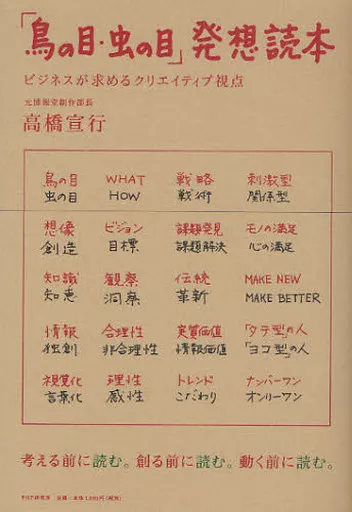 「鳥の目・虫の目」発想読本
ビジネスが求めるクリエイティブ視点
元博報堂制作部長
高橋宣行
鳥の目 WHAT 戦略 刺激型
虫の目 HOW 戦術 関係型
想像 ビジョン 課題発見 モノの満足
創造 目標 課題解決 心の満足
知識 観察 伝統 MAKE NEW
知恵 洞察 革新 MAKE BETTER
情報 合理性 実質価値 「タテ型」の人
独創 非合理性 情報価値 「ヨコ型」の人
視覚化 理性 トレンド ナンバーワン
言葉化 感性 こだわり オンリーワン
考える前に読む。創る前に読む。動く前に読む。
PHP研究所